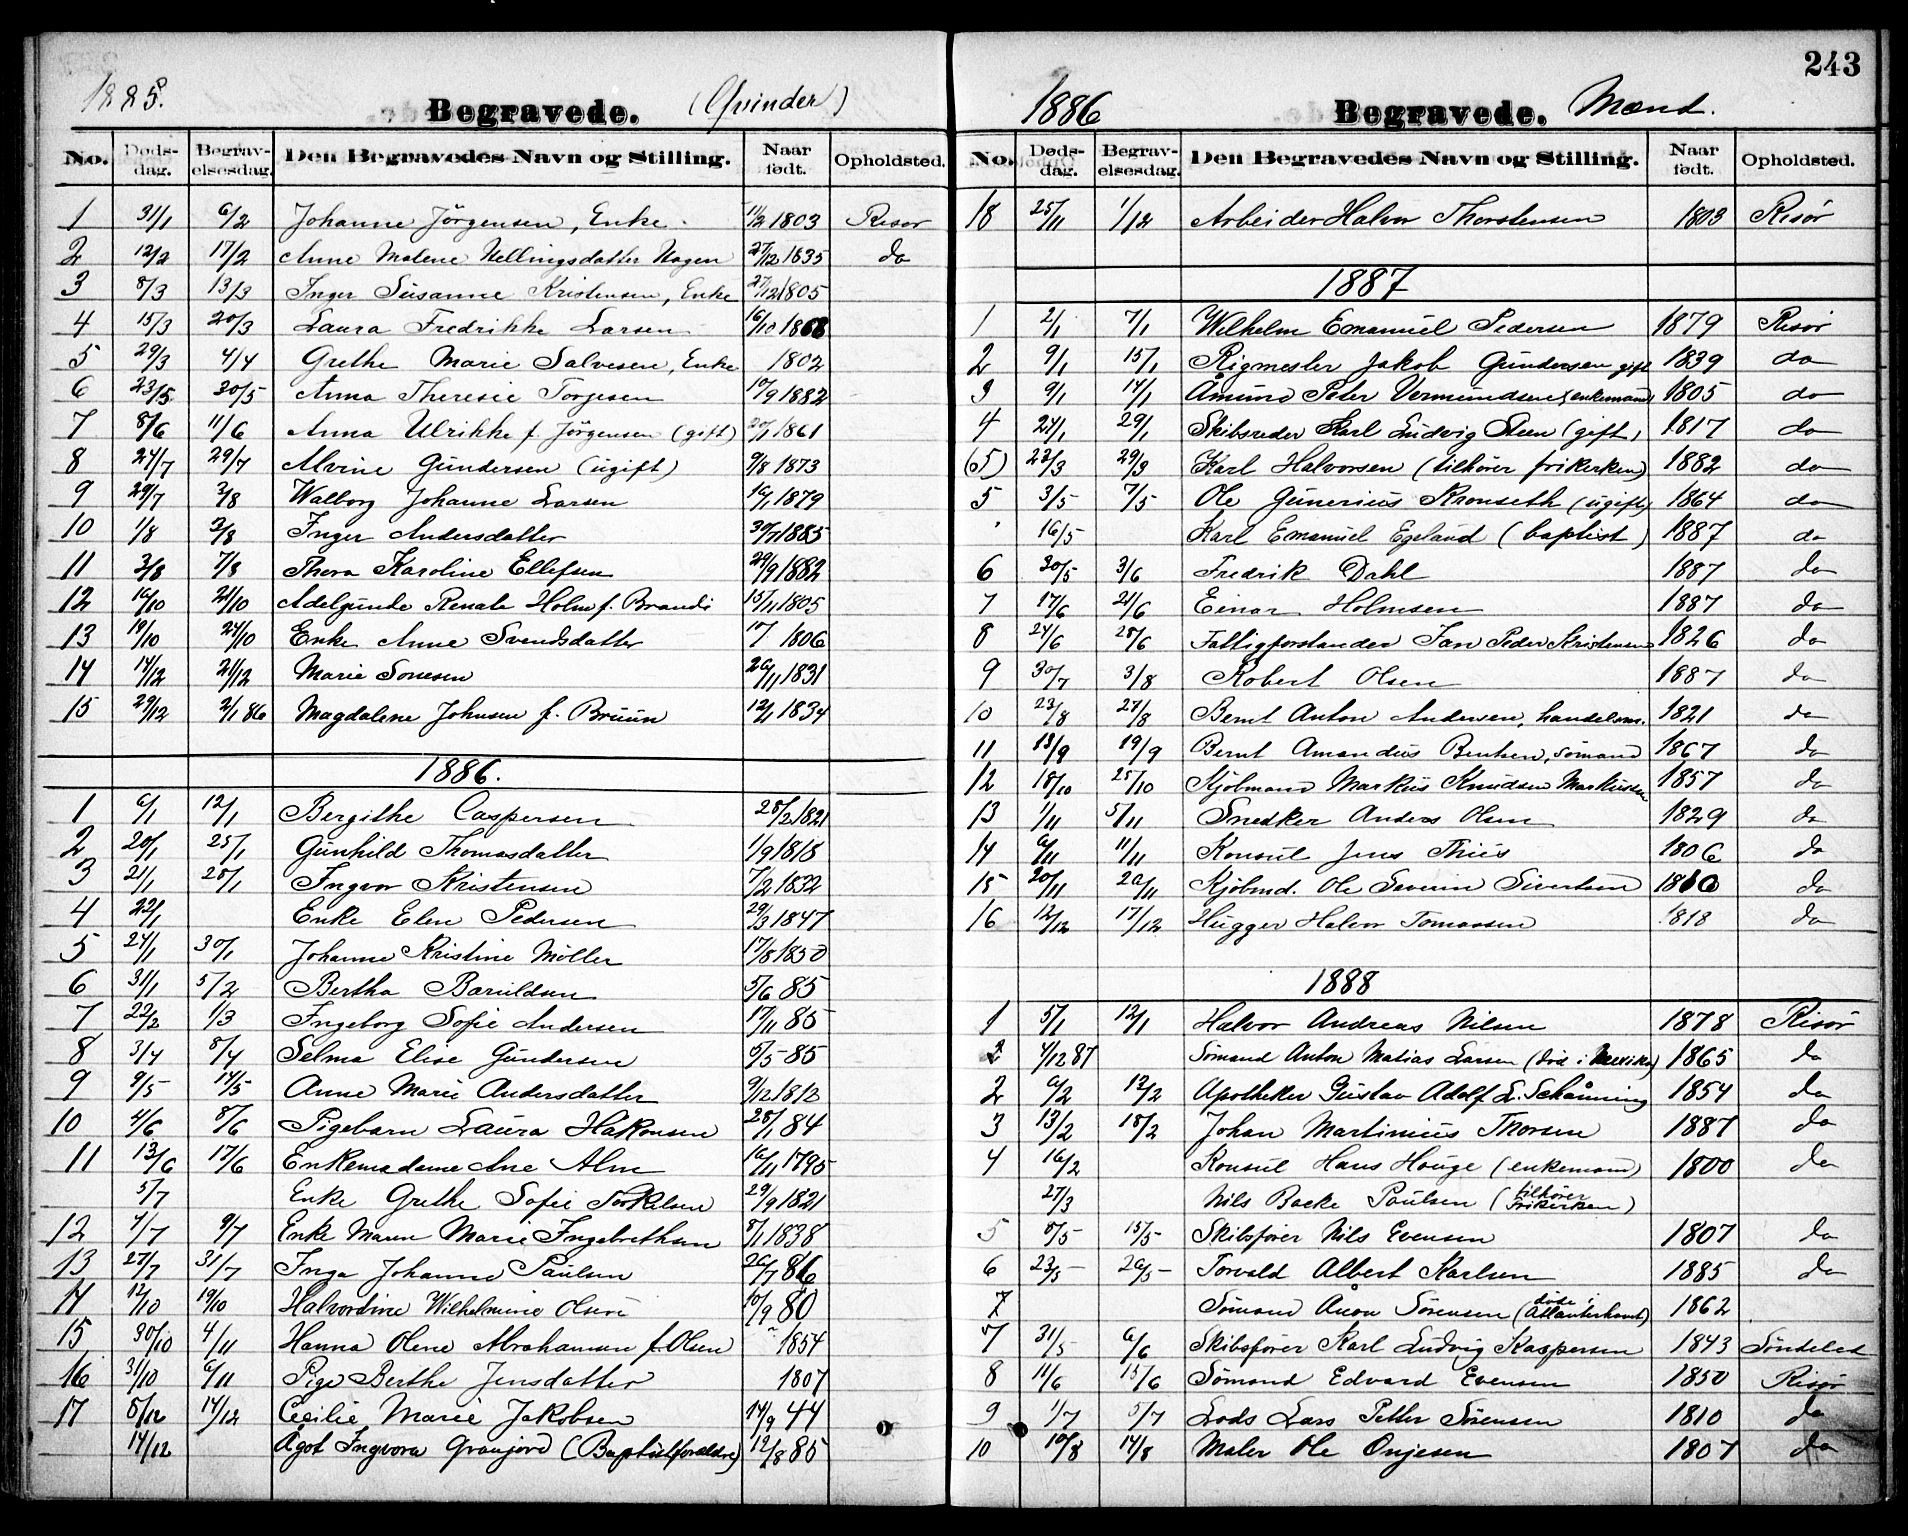 243
1885. Begravede. (Qvinder)
No. Døds-dag. Begrav-elsesdag. Den Begravedes Navn og Stilling. Naar født. Opholdsted.
1 31/1 6/2 Johanne Jörgensen, Enke. 11/2 1803 Risør
2 12/2 17/2 Anne Malene Hellingsdatter Hagen 27/12 1835 do
3 8/3 13/3 Inger Susanne Kristensen, Enke 27/12 1805
4 15/3 20/3 Laura Fredrikke Larsen 16/10 1868
5 29/3 4/4 Grethe Marie Salvesen, Enke 1802
6 23/5 30/5 Anna Theresie Torgesen 10/9 1882
7 8/6 11/6 Anna Ulrikke f. Jørgensen (gift) 20/1 1861
8 24/7 29/7 Alvine Gundersen (ugift) 9/8 1873
9 29/7 2/8 Walborg Johanne Larsen 16/1 1879
10 1/8 2/8 Inger Andersdatter 30/7 1885
11 3/8 7/8 Thora Karoline Ellefsen 29/9 1882
12 16/10 21/10 Adelgunde Renate Holm f. Brandi 15/11 1805
13 19/10 24/10 Enke Anne Svendsdatter 1806
14 14/12 21/12 Marie Sonesen 26/11 1831
15 29/12 2/1 86 Magdalene Johnsen f. Bruun 12/1 1834
1886.
1 6/1 12/1 Bergithe Caspersen 28/2 1821
2 20/1 25/1 Gunhild Thomasdatter 1/9 1818
3 21/1 28/1 Ingvor Kristensen 7/2 1832
4 22/1 Enke Elen Pedersen 29/3 1847
5 24/1 30/1 Johanne Kristine Möller 17/8 1850
6 31/1 5/2 Bertha Baruldsen 5/6 85
7 22/2 1/3 Ingeborg Sofie Andersen 17/11 85
8 3/4 8/4 Selma Elise Gundersen 5/5 85
9 9/5 14/5 Anne Marie Andersdatter 9/12 1812
10 4/6 8/6 Pigebarn Laura Håkonsen 28/1 84
11 13/6 17/6 Enkemadame Ane Alm 16/11 1795
5/7 Enke Grethe Sofie Torkelsen 29/9 1821
12 4/7 9/7 Enke Maren Marie Ingebrethsen 8/1 1838
13 27/7 31/7 Inga Johanne Paulsen 26/7 86
14 12/10 19/10 Halvordine Wilhelmine Olsen 10/9 80
15 30/10 4/11 Hanna Olene Abrahamsen f. Olsen 1854
16 31/10 6/11 Pige Berthe Jensdatter 1807
17 5/12 14/12 Cecilie Marie Jakobsen 14/9 44
14/12 Agot Ingvora Granjord (Baptistforældre) 12/8 85
1886 Begravede. Mænd.
No. Døds-dag. Begrav-elsesdag. Den Begravedes Navn og Stilling. Naar født. Opholdsted.
18 25/11 1/12 Arbeider Halvor Thorstensen 1803 Risør
1887
1 2/1 7/1 Wilhelm Emanuel Pedersen 1879 Risør
2 9/1 15/1 Rigmester Jakob Gundersen gift 1839 do
3 9/1 14/1 Åmund Peter Vermundsen (enkemand) 1805 do
4 24/1 29/1 Skibsreder Karl Ludvig Steen (gift) 1817 do
(05) 23/3 29/3 Karl Halvorsen (tilhører frikirken) 1882 do
5 3/5 7/5 Ole Gunerius Kronseth (ugift) 1864 do
16/5 Karl Emanuel Egeland (baptist) 1887 do
6 30/5 3/6 Fredrik Dahl 1887 do
7 17/6 21/6 Einar Holmsen 1887 do
8 24/6 28/6 Fattigforstander Jan Peder Kristensen 1826 do
9 30/7 3/8 Robert Olsen 1887 do
10 23/8 27/8 Bernt Anton Andersen, handelsm. 1821 do
11 13/9 19/9 Bernt Amandus Bentsen, sömand 1867 do
12 18/10 25/10 Kjöbmand Markus Knudsen Markussen 1857 do
13 1/11 5/11 Snedker Anders Olsen 1829 do
14 6/11 11/11 Konsul Jens Thiis 1806 do
15 20/11 26/11 Kjöbmd. Ole Severin Sivertsen 1810 do
16 12/12 17/12 Hugger Halvor Tomassen 1818 do
1888
1 5/1 12/1 Halvor Andreas Nilsen 1878 Risør
4/12 87 Sömand Anton Matias Larsen (død i Mexiko) 1865 do
2 6/2 12/2 Apotheker Gustav Adolf L. Schånning 1854 do
3 13/2 18/2 Johan Martinius Thorsen 1887 do
4 16/2 Konsul Hans Houge (enkemand) 1800 do
27/3 Nils Backe Paulsen (tilhører Frikirken)
5 8/5 15/5 Skibsfører Nils Evensen 1807 do
6 23/5 26/5 Torvald Albert Karlsen 1885 do
7 Sømand Aron Sörensen (døde i Atlanterhavet) 1862
7 31/5 6/6 Skibsfører Karl Ludvig Kaspersen 1843 Søndeled
8 11/6 15/6 Sømand Edvard Evensen 1850 Risør
9 1/7 5/7 Lods Lars Petter Sørensen 1810 do
10 10/8 14/8 Maler Ole Onjesen 1807 do